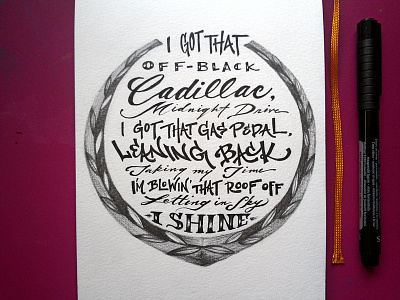 I GOT THAT
OFF-BLACK
Cadillac,
Midnight Drive
I GOT THAT GAS PEDAL,
LEANING BACK
Taking my Time
I'M BLOWIN' THAT ROOF OFF
Letting in Sky
I SHINE